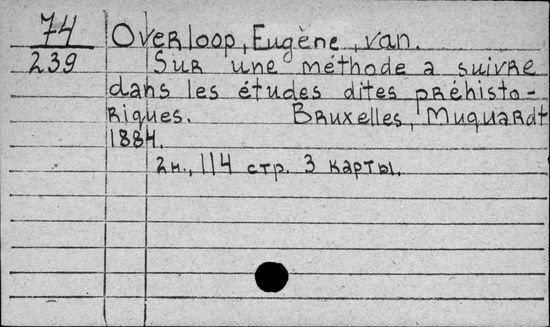 74 Overloop, Eugène, van.
239 Sur une méthode a suivre
dans les études dites préhisto-
riques. Bruxelles, Muquardt
1884.
2н., 114 стр. 3 карты.